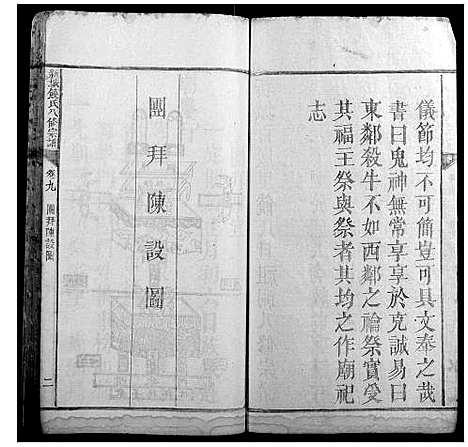 儀節均不可簡豈可具文奉之哉
書曰鬼神無常享享於克誠易曰
東鄰殺牛不如西鄰之禴祭實受
其福王祭與祭者其均之作廟祀
志
團拜陳設圖
錢氏八修宗譜
卷九
團拜陳設圖
二